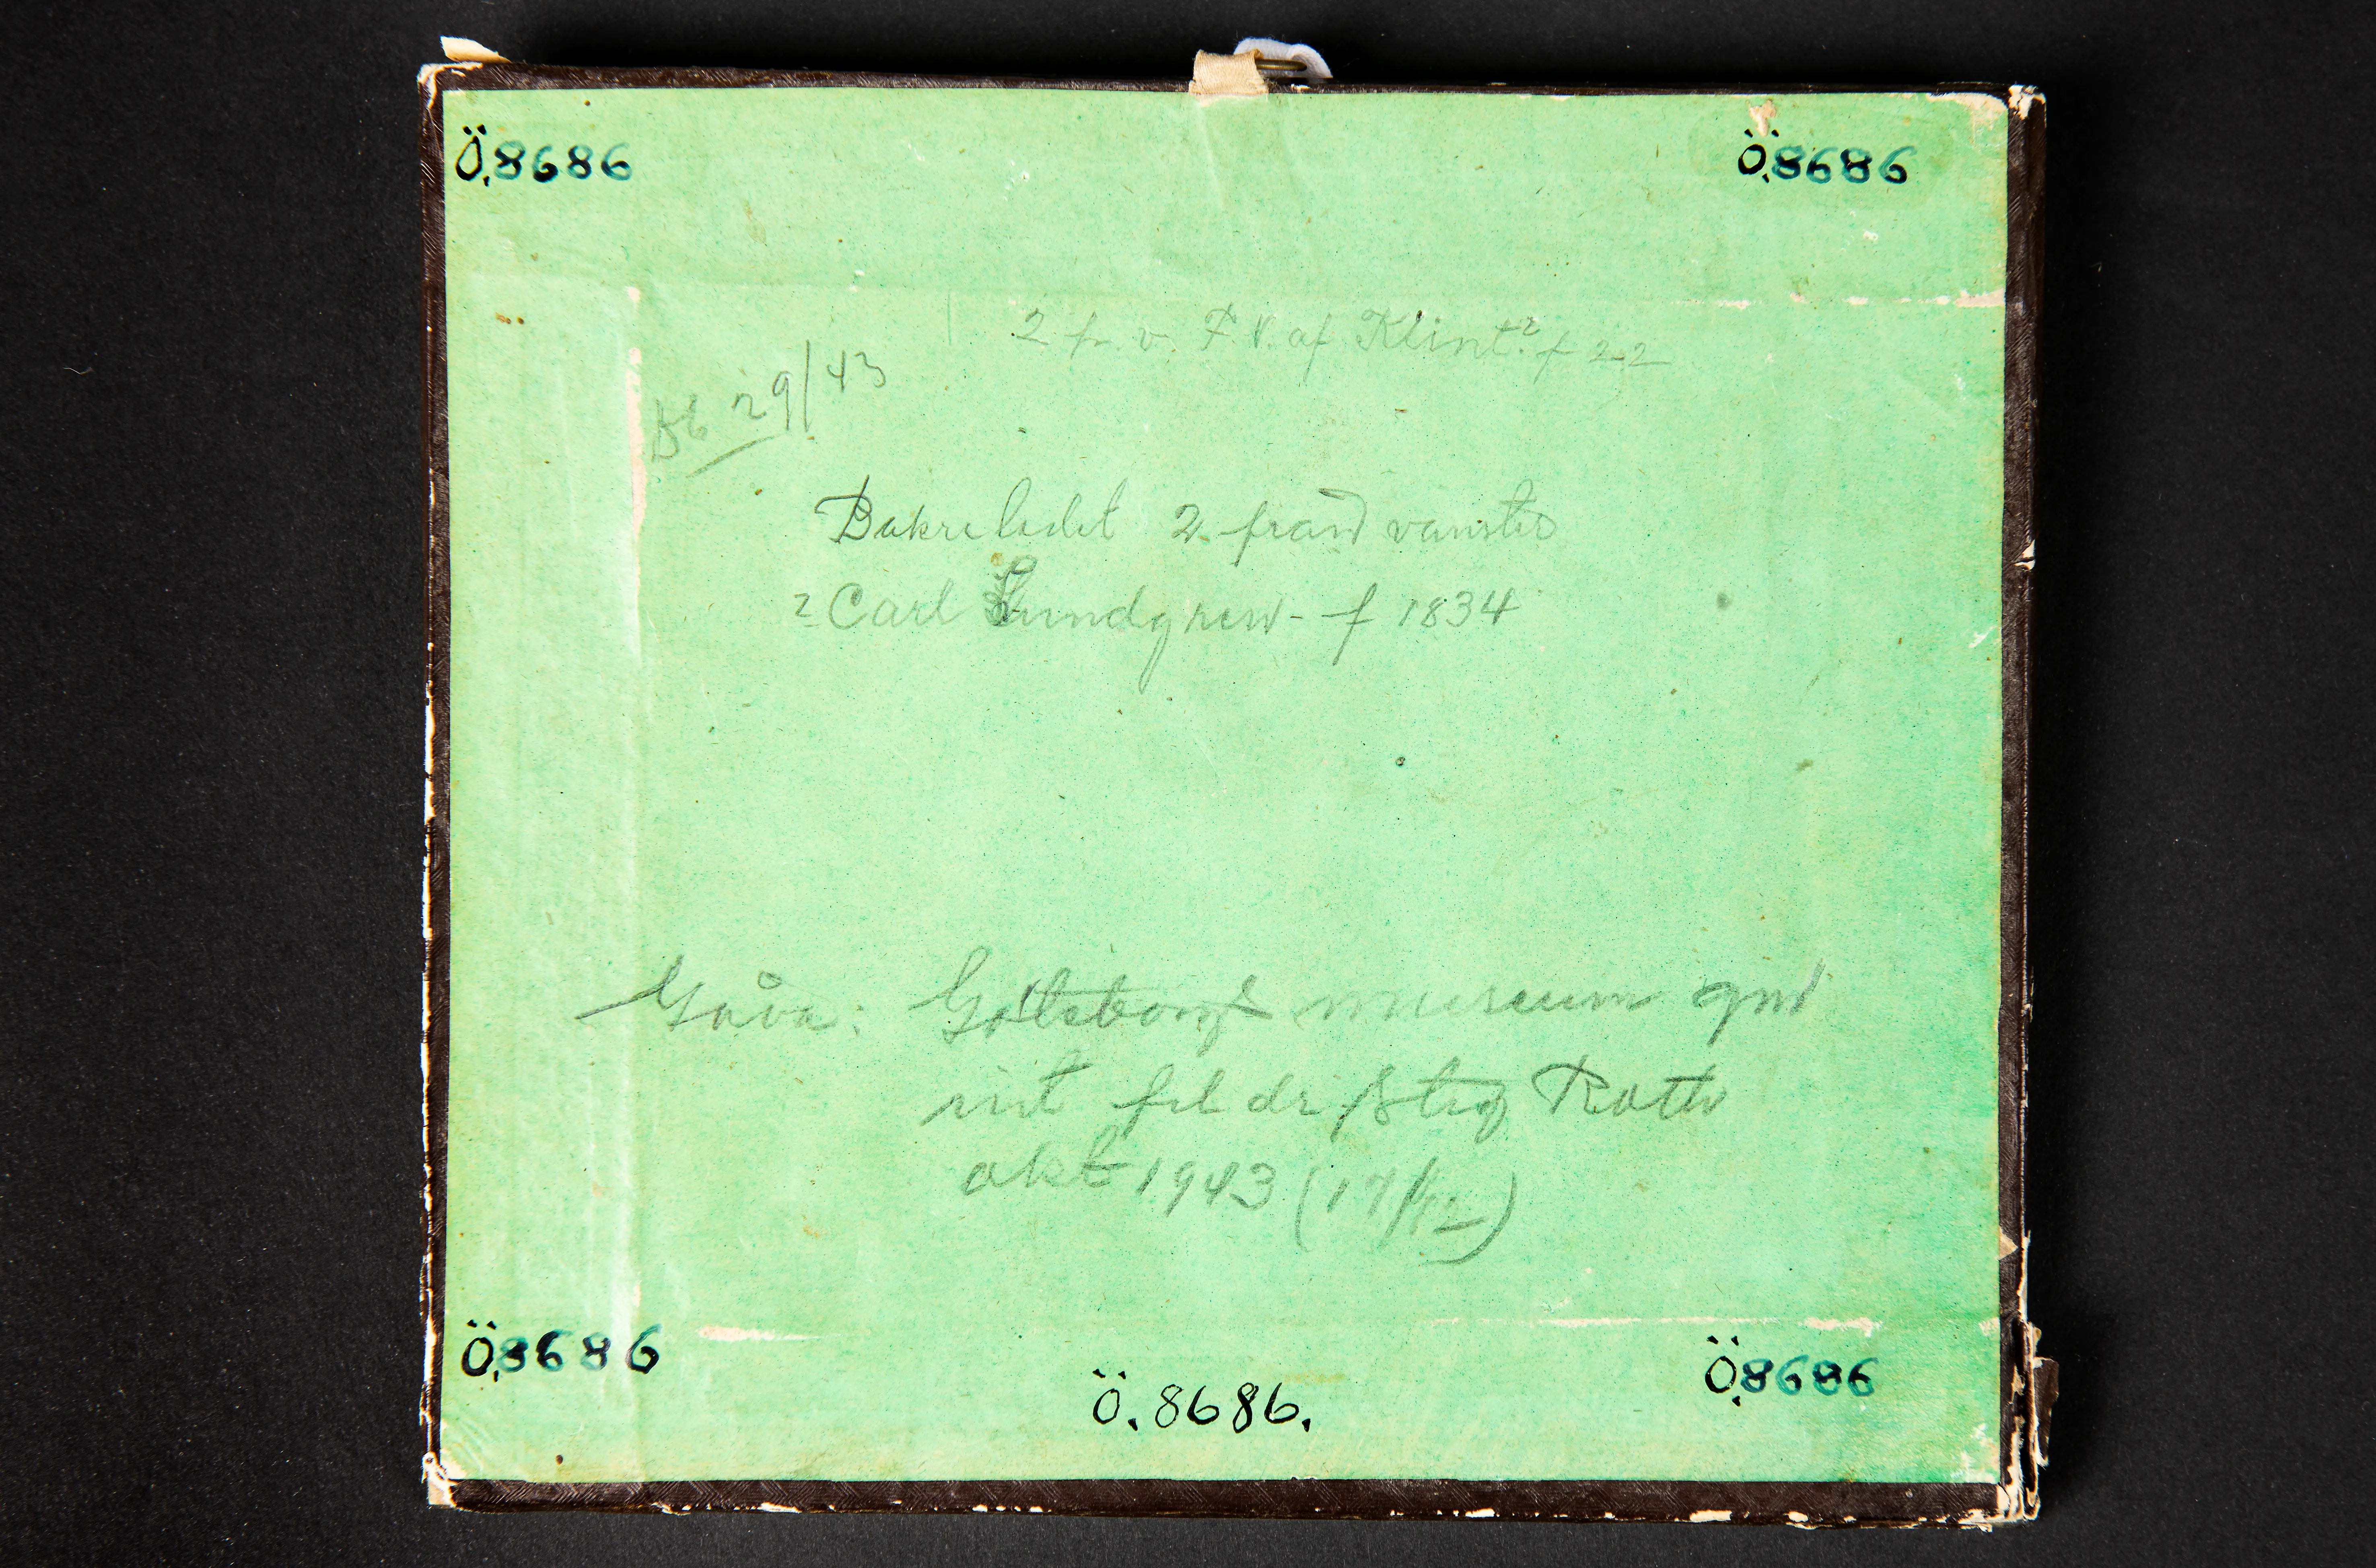 Ö.8686
Ö.8686
2 fr. v. F V. af Klint? f 22
Db 29/43
Bakre ledet 2 från vänster
? Carl Lundgren - f 1834
Gåva: Göteborgs museum gm
int fil dr Stig Roth
okt 1943 (17/12)
Ö.8686
Ö. 8686.
Ö.8686